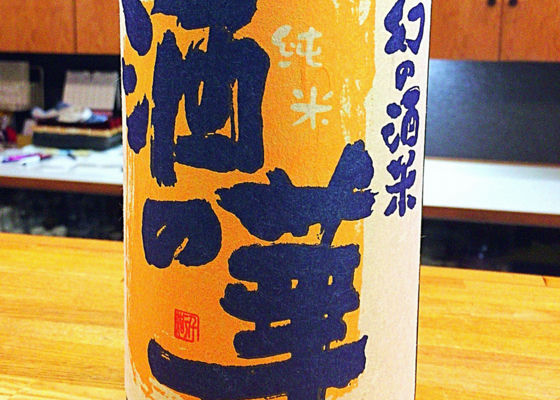 幻の酒米
純米
酒の
華